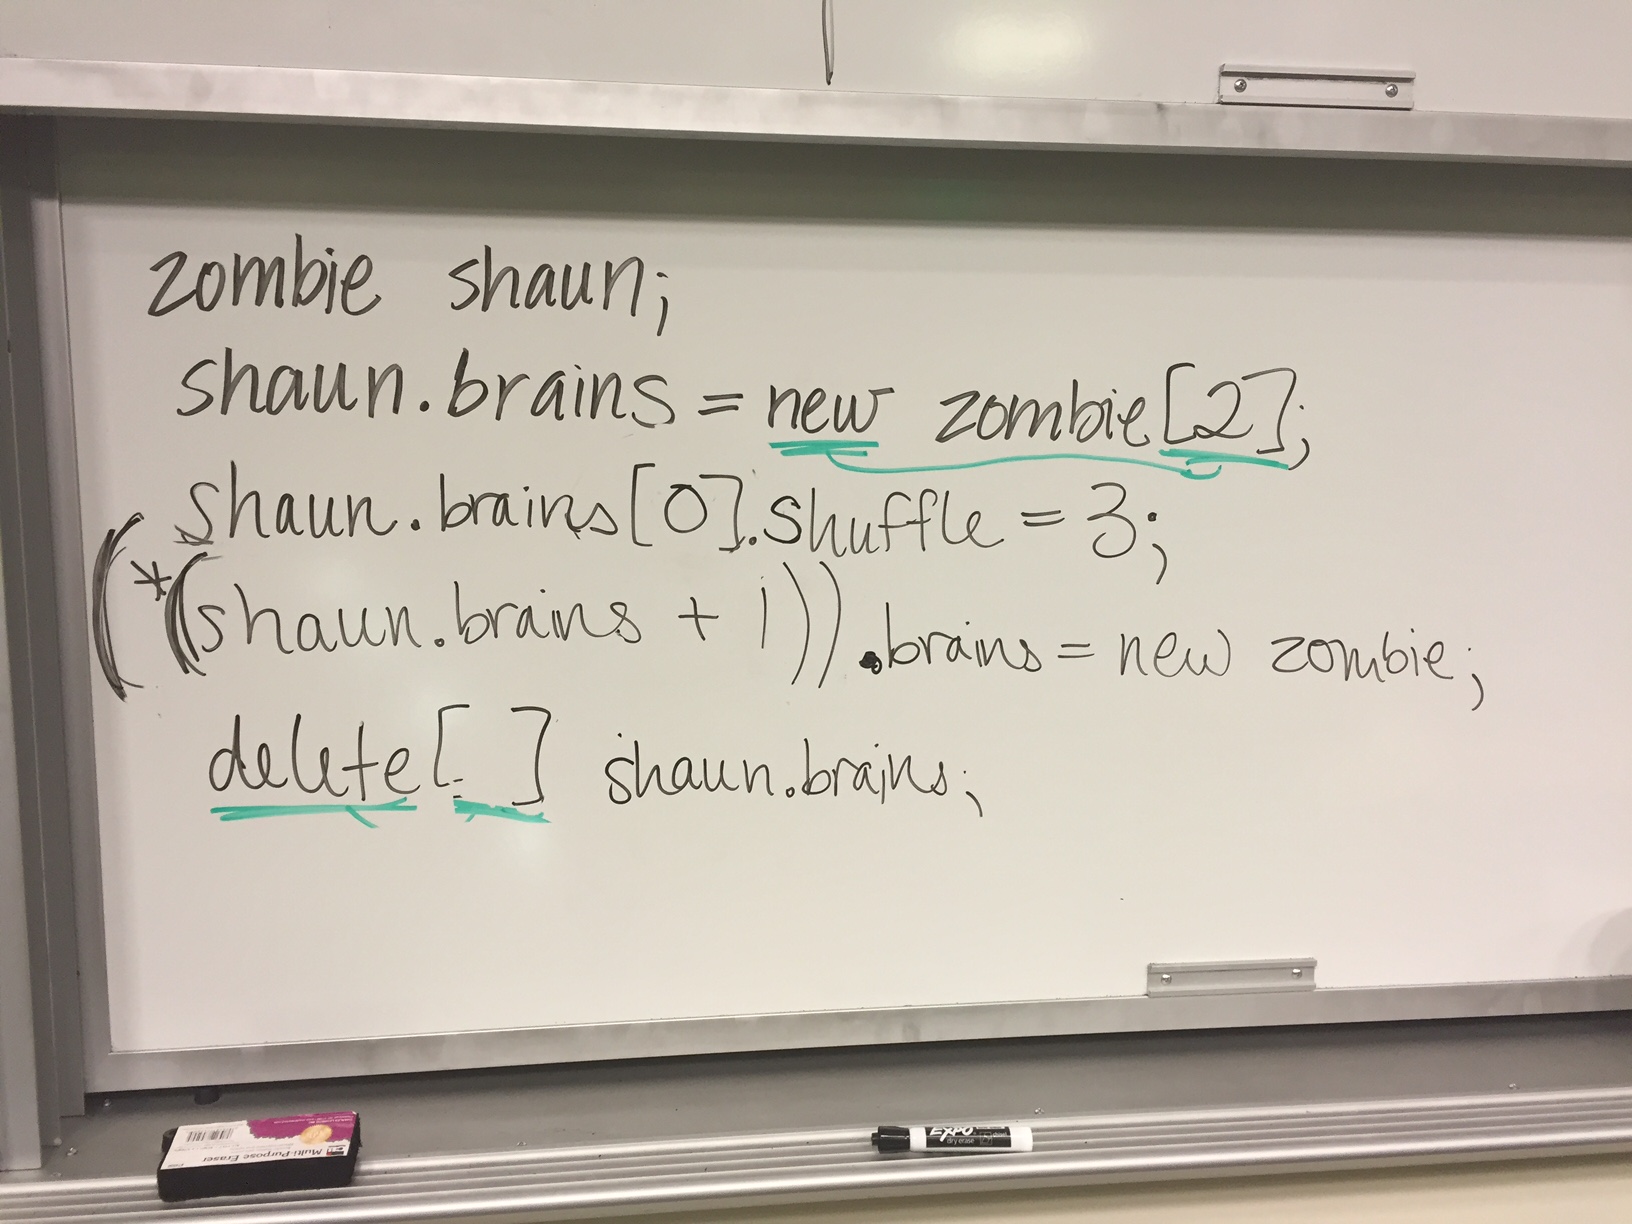 zombie shaun;
shaun.brains = new zombie[2];
shaun.brains[0].shuffle = 3;
(*(shaun.brains + 1)).brains = new zombie;
delete[ ] shaun.brains;
Multi-Purpose Eraser
EXPO
dry erase